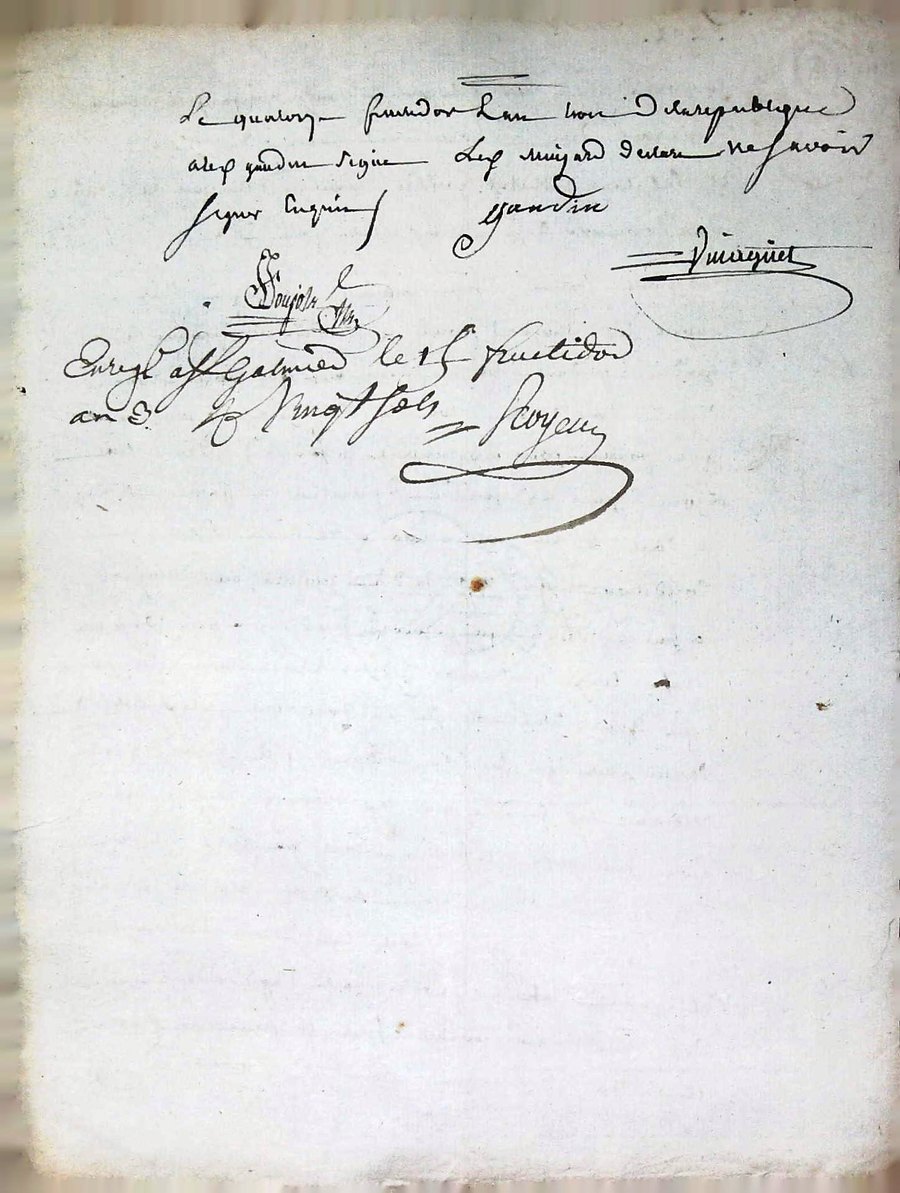 Le quatorze fructidor Lan trois Delarepublique
led gaudin signe Led muzard declare ne savoir
signer Enquis gaudin
Dumaguet
Enregt a St Galmier le 15 fructidor
an 3 Vingt sols